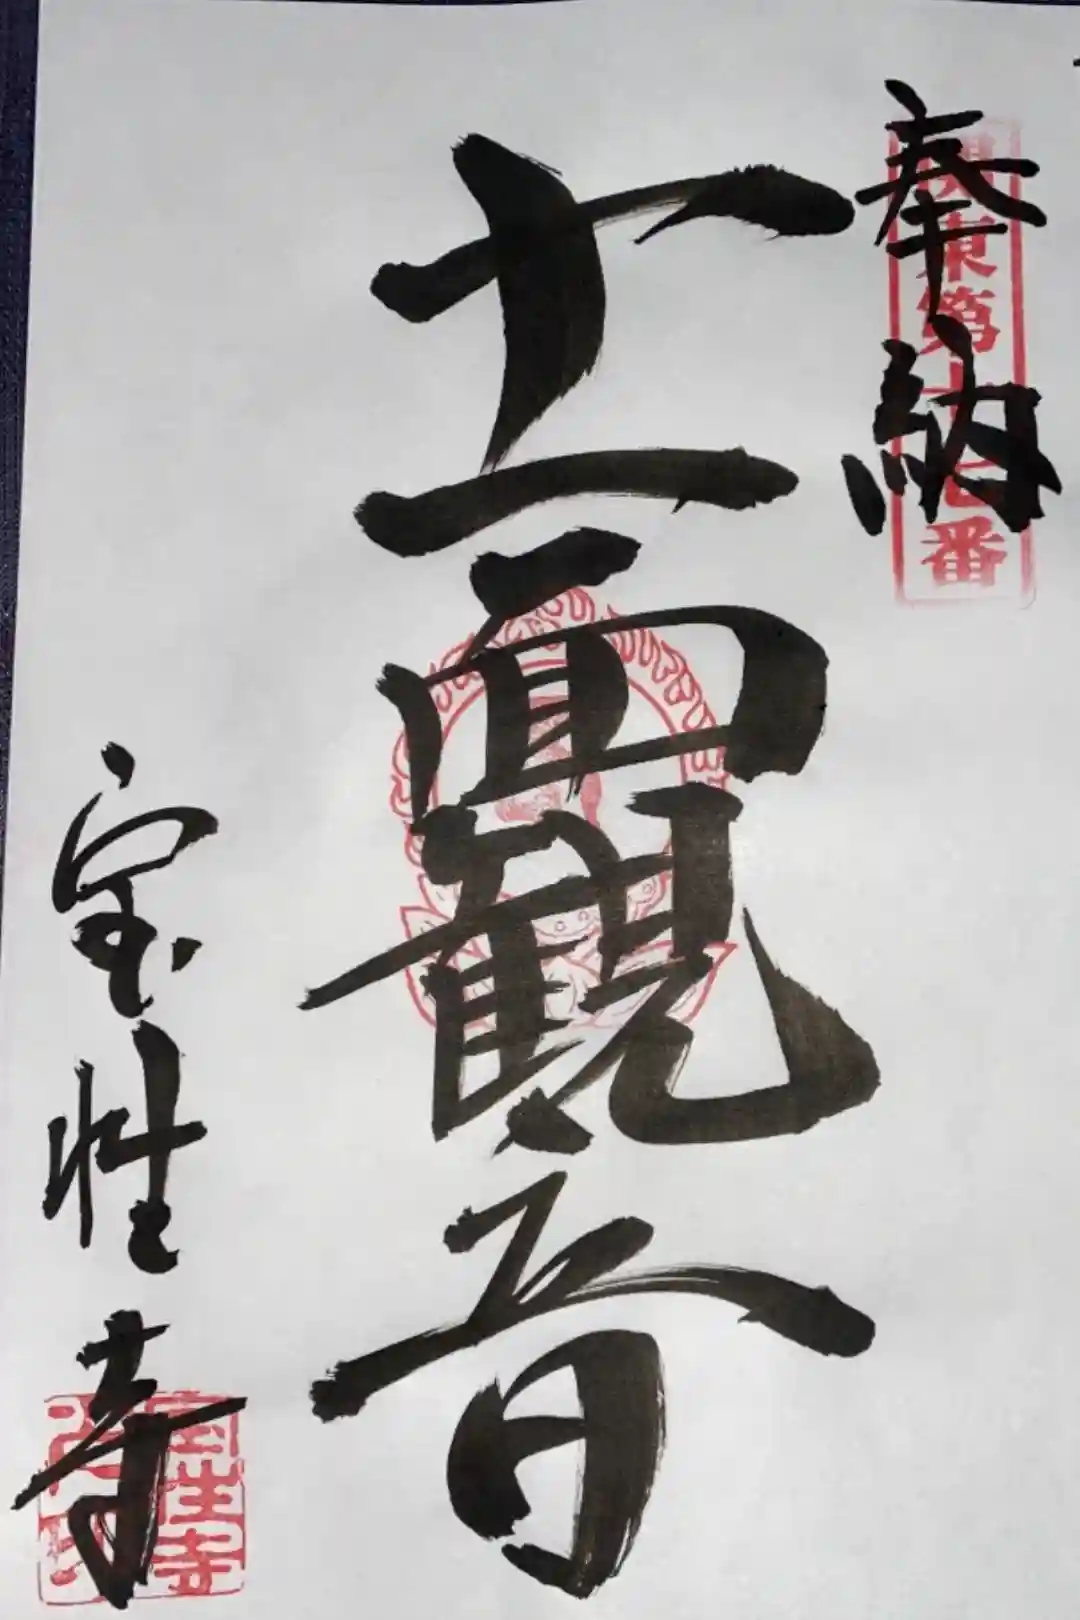 奉納
関東第十七番
十一面観音
宝性寺
宝性寺